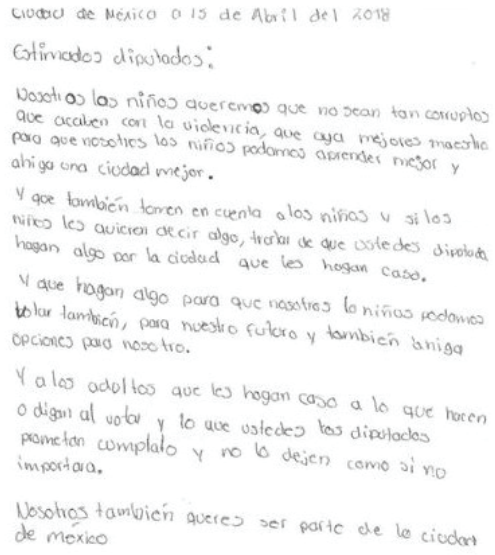 Ciudad de México a 15 de Abril del 2018
Estimados diputados:
Nosotros los niños queremos que no sean tan corruptos
que acaben con la violencia, que aya mejores maestro
para que nosotros los niños podamos aprender mejor y
ahiga una ciudad mejor.
Y que también tomen en cuenta a los niños y si los
niños les quieren decir algo, tratar de que ustedes diputada
hagan algo por la ciudad que les hagan caso.
Y que hagan algo para que nosotros lo niños podamos
votar también, para nuestro futuro y también
opciones para nosotro.
Y a los adoltos que les hagan caso a lo que hacen
o digan al votar y lo que ustedes los dipotados
prometan complato y no lo dejen como si no
importara.
Nosotros también queres ser parte de la ciudad
de méxico